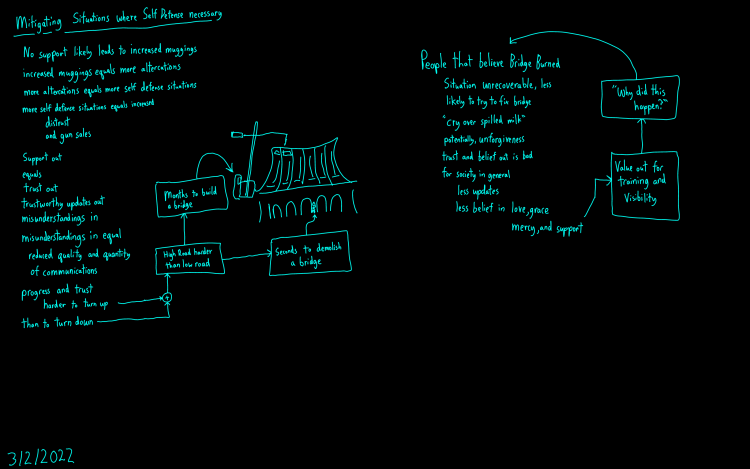 Mitigating Situations where Self Defense necessary
No support likely leads to increased muggings
increased muggings equals more altercations
more altercations equals more self defense situations
more self defense situations equals increased
distrust
and gun sales
Support out
equals
trust out
trustworthy updates out
misunderstandings in
misunderstandings in equal
reduced quality and quantity
of communications
progress and trust
harder to turn up
than to turn down
+
High Road harder
than low road
Months to build
a bridge
Seconds to demolish
a bridge
People that believe Bridge Burned
Situation unrecoverable, less
likely to try to fix bridge
"cry over spilled milk"
potentially, unforgiveness
trust and belief out is bad
for society in general
less updates
less belief in love, grace
mercy, and support
Value out for
training and
visibility
"Why did this
happen?"
3/2/2022